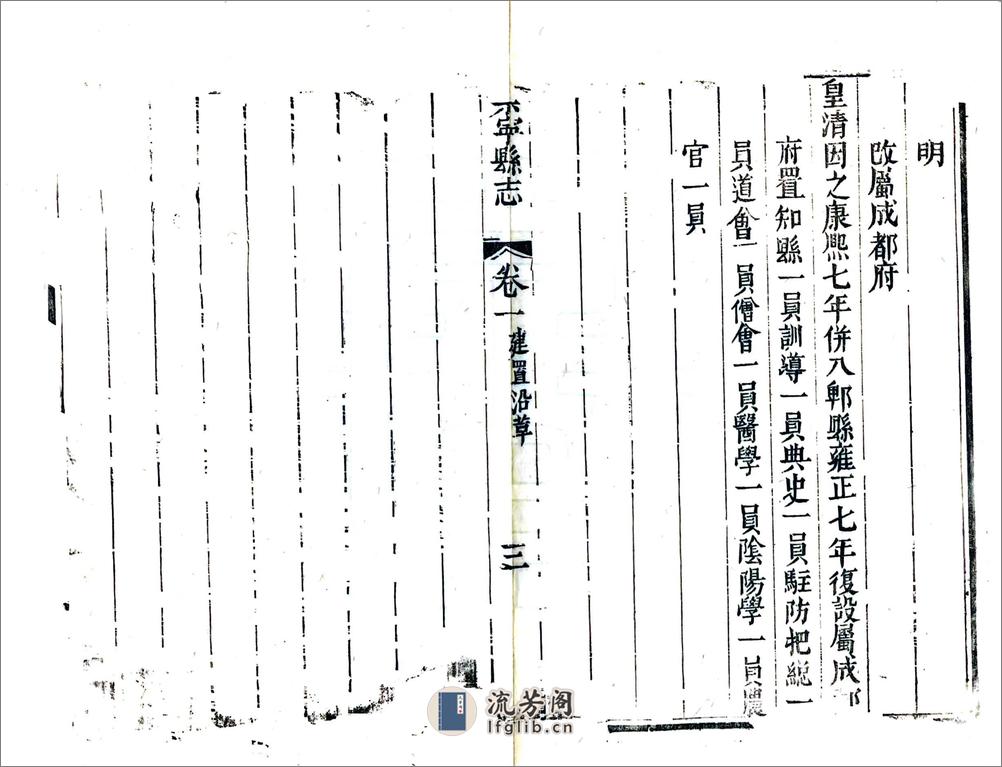 明
改屬成都府
皇清因之康熙七年併入郫縣雍正七年復設屬成都
府置知縣一員訓導一員典史一員駐防把總一
員道會一員僧會一員醫學一員陰陽學一員農
官一員
崇寧縣志
卷一
建置沿革
三
流芳阁
lfglib.cn